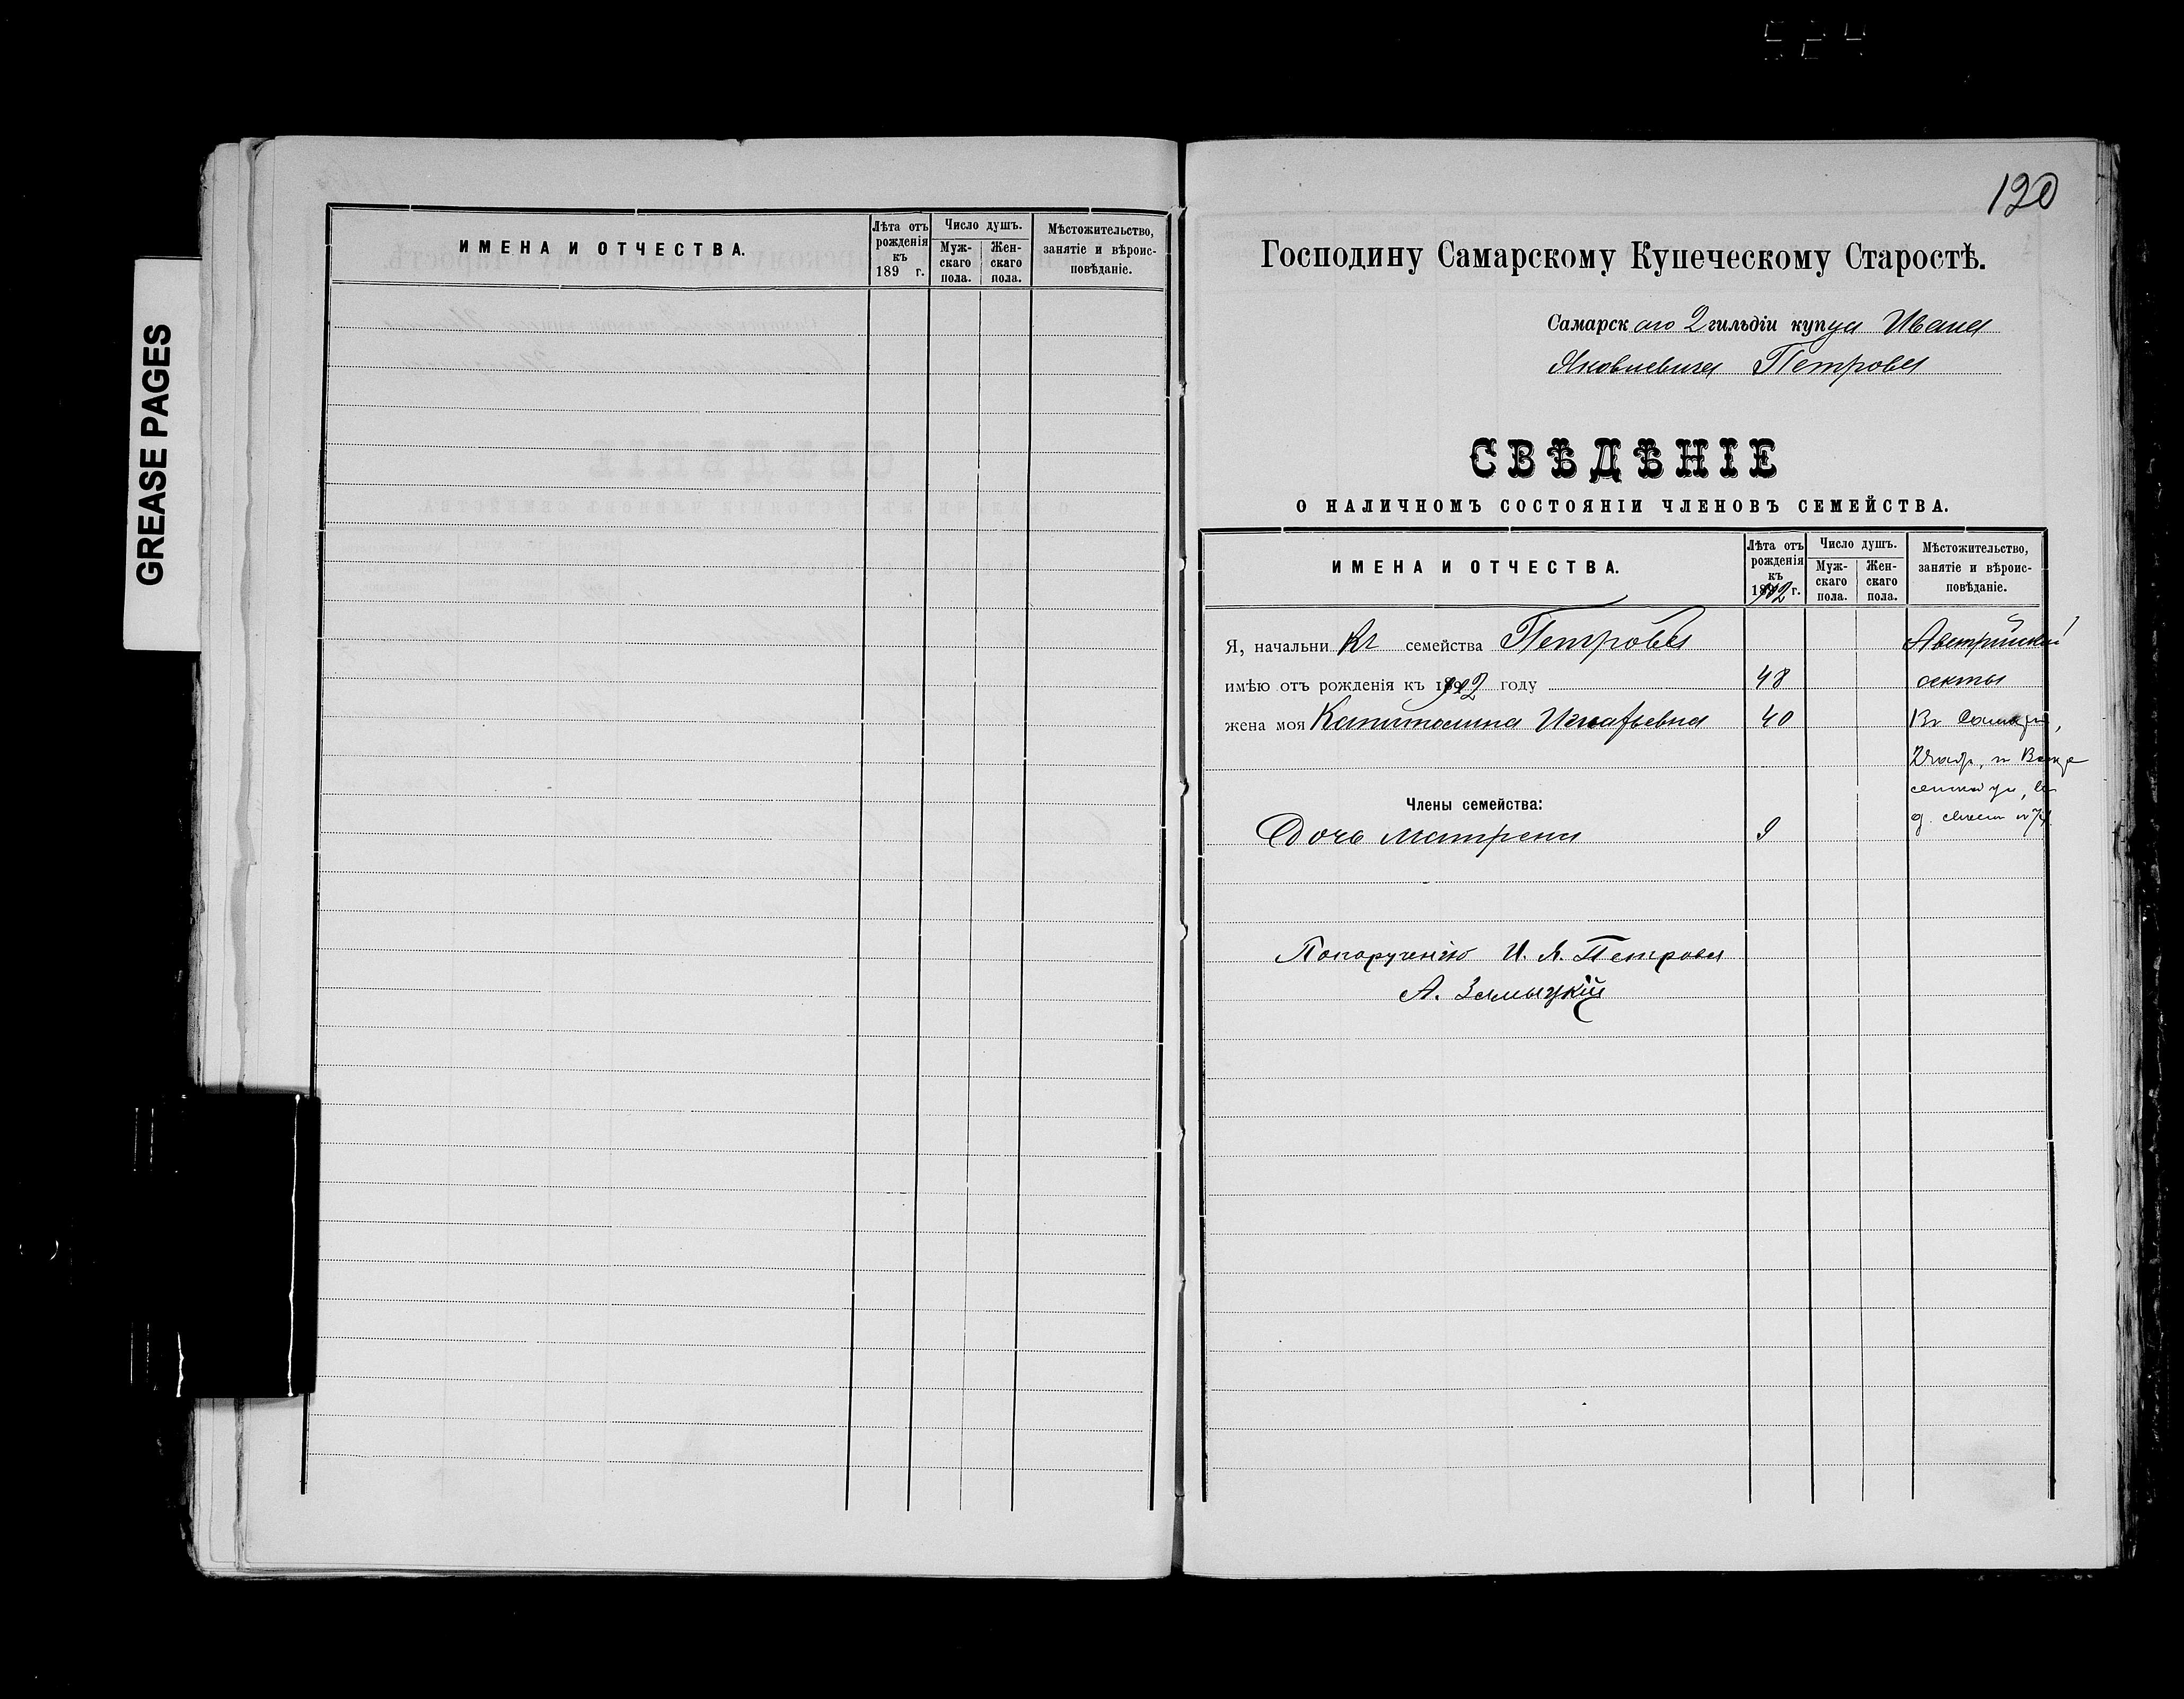 524
GREASE PAGES
ИМЕНА И ОТЧЕСТВА.
Лѣта отъ рожденія къ 189 г.
Число душъ.
Муж-скаго пола.
Жен-скаго пола.
Мѣстожительство, занятіе и вѣроис-повѣданіе.
120
Господину Самарскому Купеческому Старостѣ.
Самарскаго 2 гильдіи купца Ивана
Яковлевича Петрова
СВѢДѢНІЕ
О НАЛИЧНОМЪ СОСТОЯНІИ ЧЛЕНОВЪ СЕМЕЙСТВА.
ИМЕНА И ОТЧЕСТВА.
Лѣта отъ рожденія къ 1902 г.
Число душъ.
Муж-скаго пола.
Жен-скаго пола.
Мѣстожительство, занятіе и вѣроис-повѣданіе.
Я, начальникъ семейства Петрова Австрийской
имѣю отъ рожденія къ 1902 году 48 секты
жена моя Капиталина Игнатьевна 40 Въ Самарѣ,
Члены семейства:
Дочь Матрена 9
По порученію И. Я. Петрова
А. Замыцкій